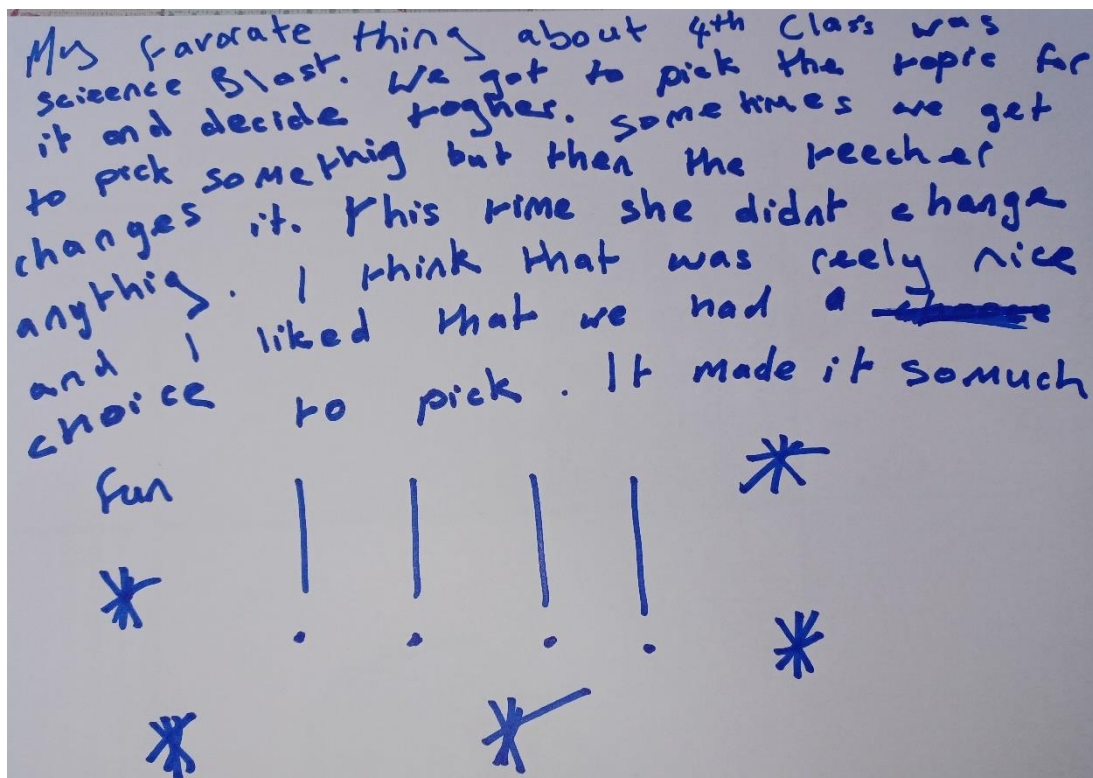 My favorate thing about 4th Class was
scieence Blast. We got to pick the topic for
it and decide togher. sometimes we get
to pick somethig but then the teecher
changes it. This time she didnt change
anythig. I think that was reely nice
and I liked that we had a
choice to pick. It made it somuch
fun !!!!